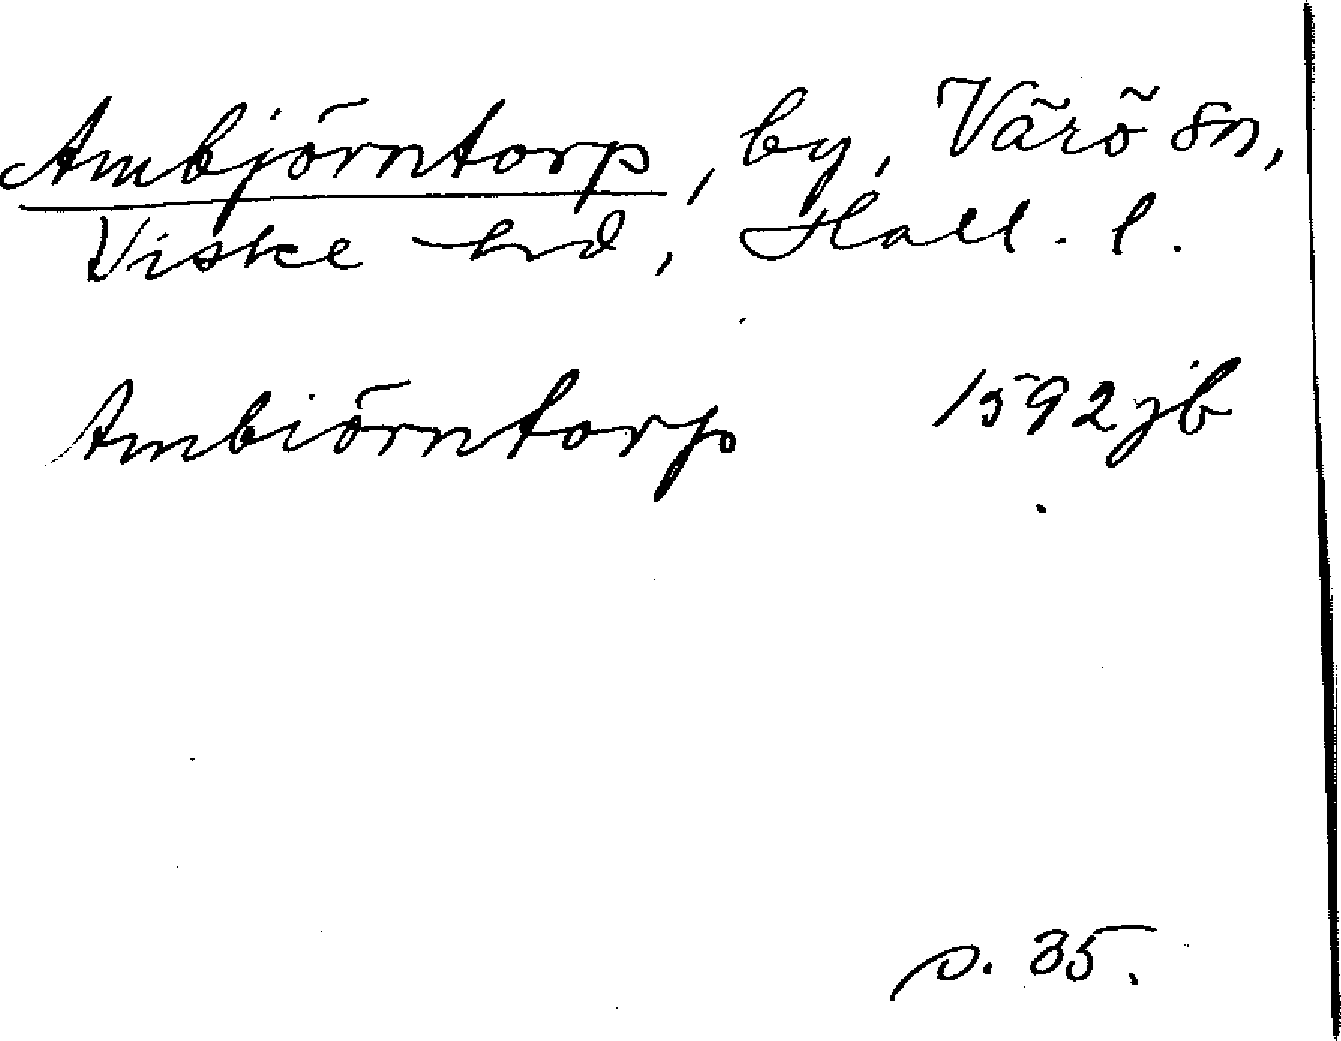 Ambjörntorp, by, Värö sn,
Viske hd, Hall. l.
Ambiörntorp 1592 jb
s. 35.